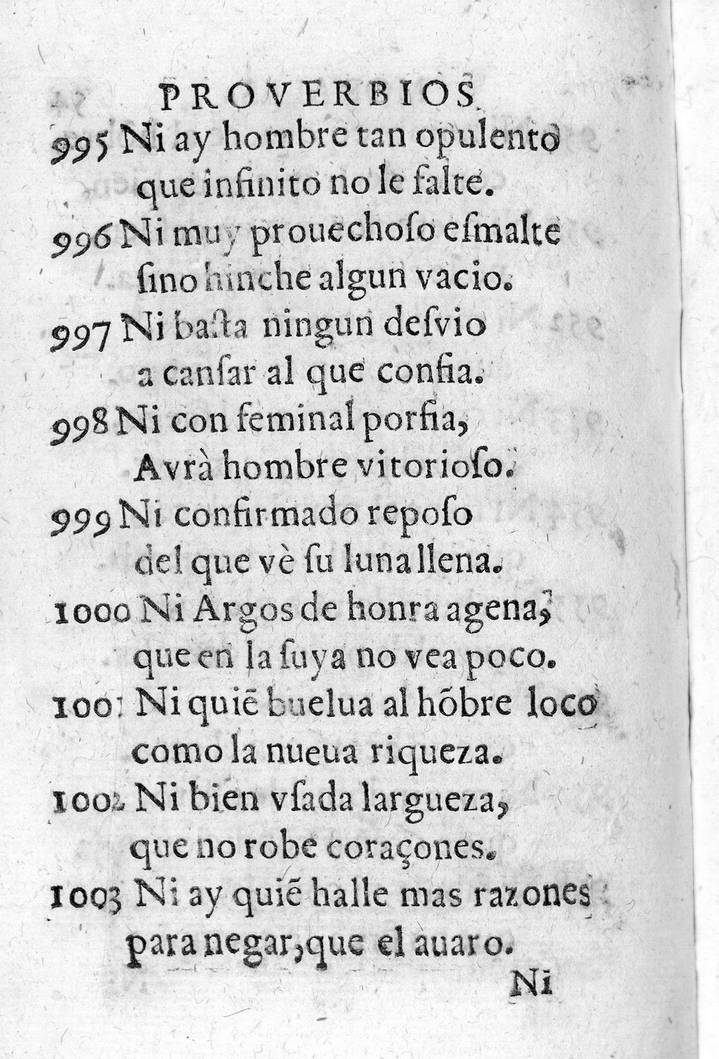 PROVERBIOS.
995 Ni ay hombre tan opulento
que infinito no le falte.
996 Ni muy prouechoſo eſmalte
ſino hinche algun vacio.
997 Ni baſta ningun deſvio
a canſar al que confia.
998 Ni con feminal porfia,
Avrà hombre vitorioſo.
999 Ni confirmado repoſo
del que vè ſu luna llena.
1000 Ni Argos de honra agena,
que en la ſuya no vea poco.
1001 Ni quiẽ buelua al hõbre loco
como la nueua riqueza.
1002 Ni bien vſada largueza,
que no robe coraçones.
1003 Ni ay quiẽ halle mas razones
para negar, que el auaro.
Ni